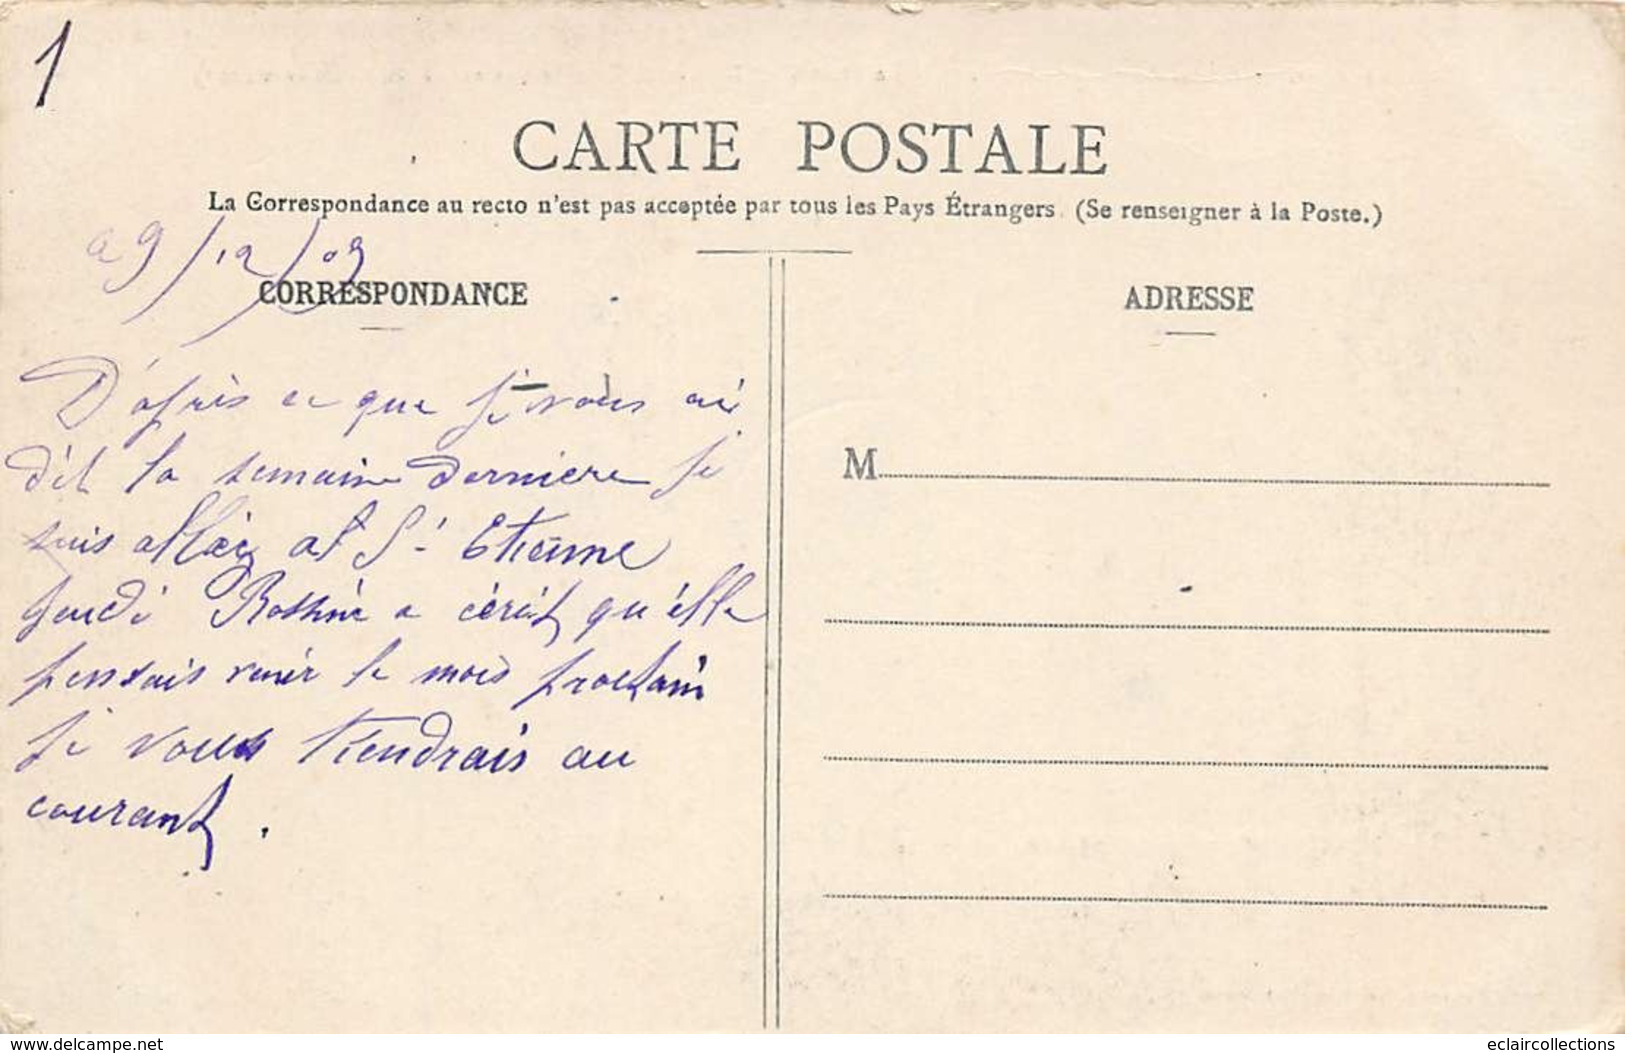 1
CARTE POSTALE
La Correspondance au recto n'est pas acceptée par tous les Pays Étrangers (Se renseigner à la Poste.)
29/12/09
CORRESPONDANCE
ADRESSE
D'après ce que je vous ai
dit la semaine derniere je
suis allez at St Etienne
Jeudi a écrit qu'elle
pensais venir le mois prochain
je vous tiendrais au
courant.
M
www.delcampe.net
eclaircollections